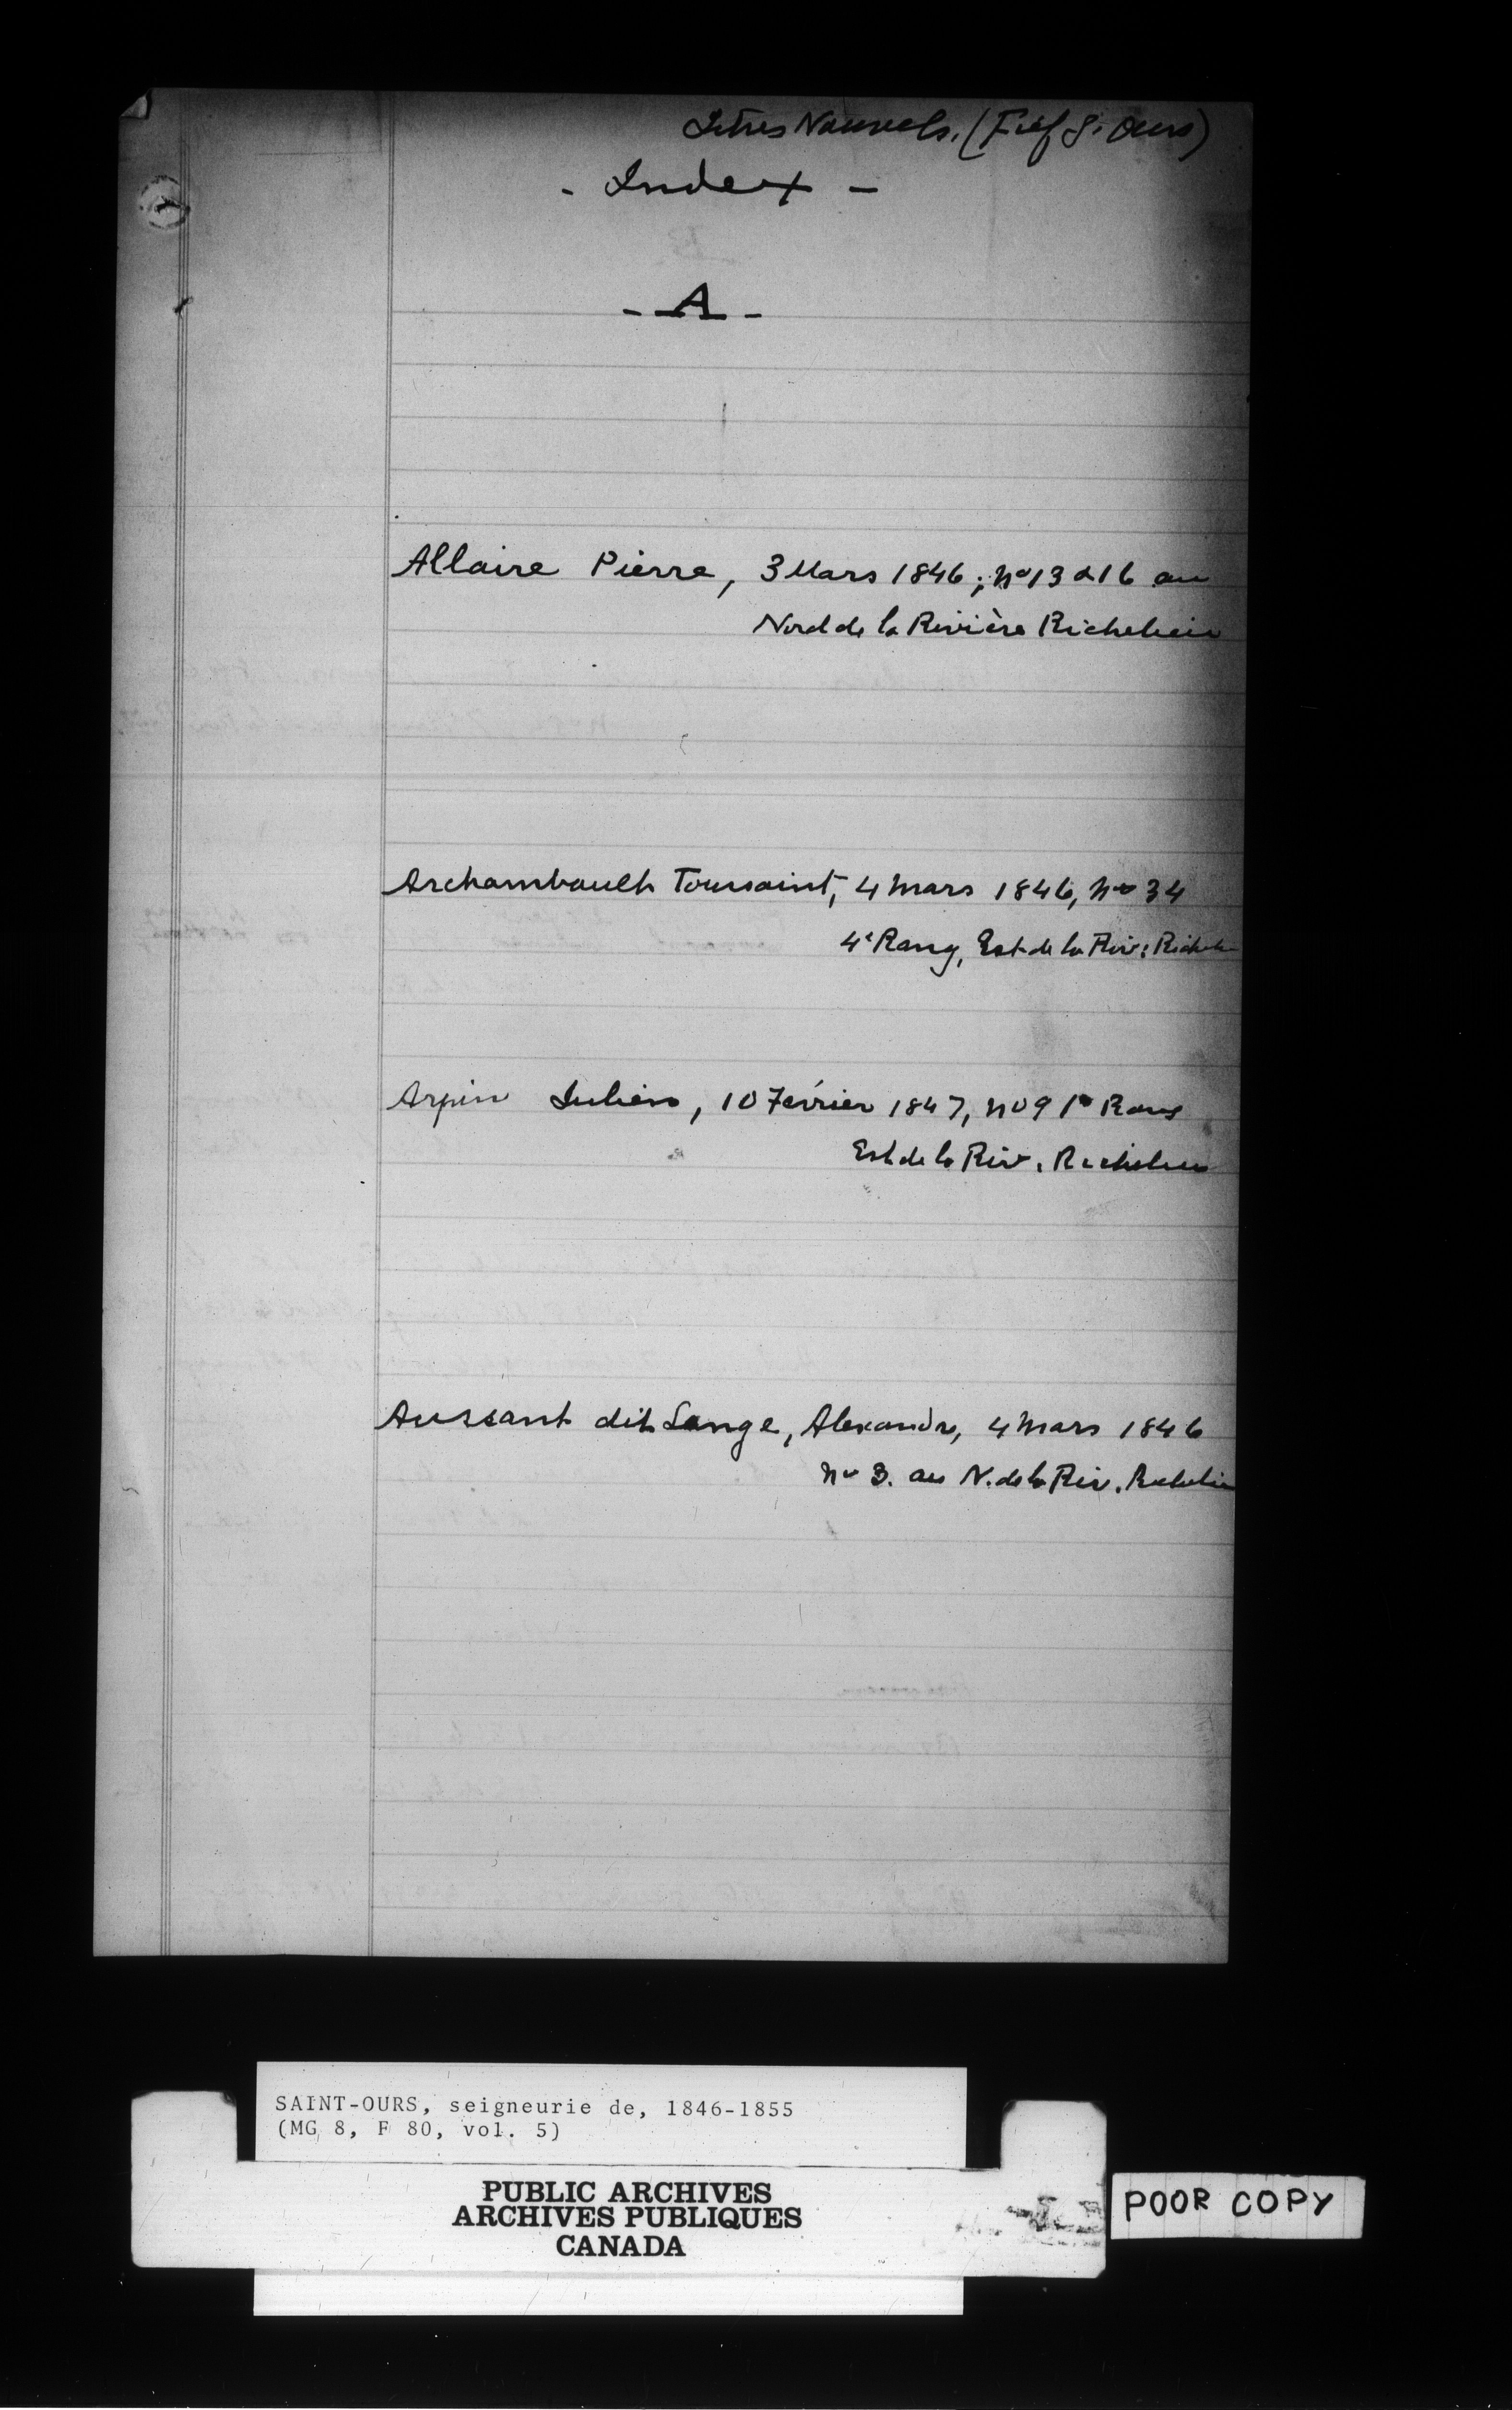 Titres Nouvels. (Fief St Ours)
- Index -
- A -
Allaire Pierre, 3 Mars 1846; No 13 & 16 au
Nord de la Rivière Richelieu
Archambault Toussaint, 4 Mars 1846, No 34
4e Rang, Est de la Riv: Richelieu
Arpin Julien, 10 Février 1847, No 9 1er Rang
Est de la Riv. Richelieu
Aussant dit Lange, Alexandre, 4 Mars 1846
No 3. au N. de la Riv. Richelieu
SAINT-OURS, seigneurie de, 1846-1855
(MG 8, F 80, vol. 5)
PUBLIC ARCHIVES
ARCHIVES PUBLIQUES
CANADA
POOR COPY